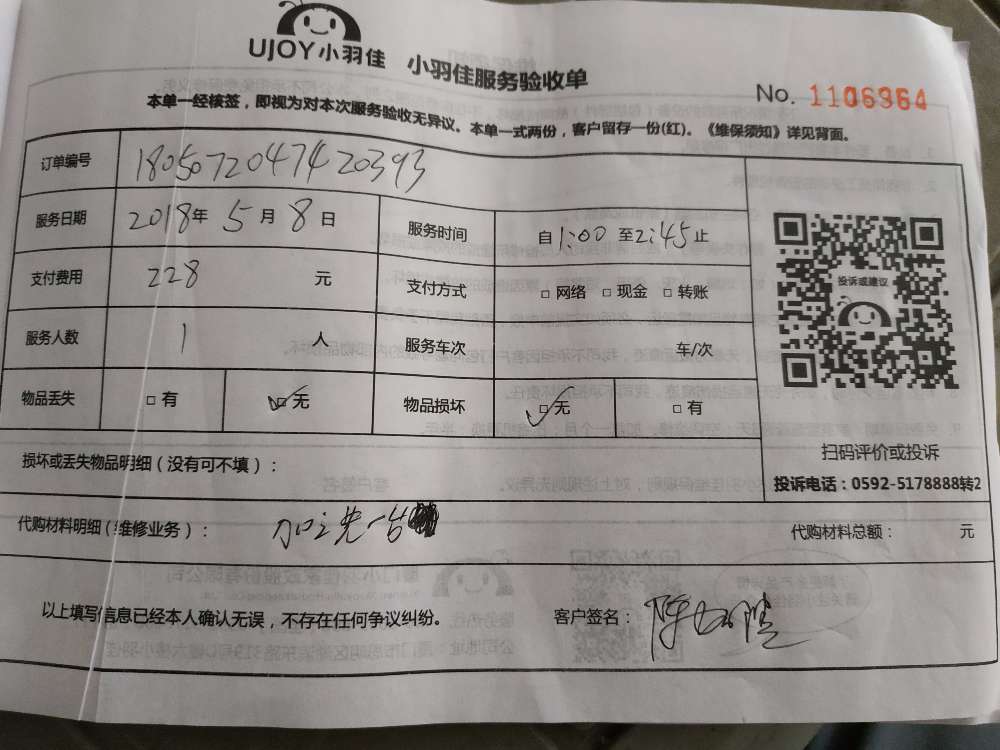 UJOY小羽佳 小羽佳服务验收单
No. 1106364
本单一经核签，即视为对本次服务验收无异议。本单一式两份，客户留存一份(红)。《维保须知》详见背面。
订单编号 18050720474420393
服务日期 2018年 5月 8日 服务时间 自1:00 至2:45止
支付费用 228 元 支付方式 □ 网络 □ 现金 □ 转账
服务人数 1 人 服务车次 车/次
物品丢失 □ 有 ✓□ 无 物品损坏 ✓□ 无 □ 有
投诉或建议
扫码评价或投诉
投诉电话：0592-5178888转2
损坏或丢失物品明细（没有可不填）：
代购材料明细（维修业务）： 代购材料总额： 元
以上填写信息已经本人确认无误，不存在任何争议纠纷。 客户签名：